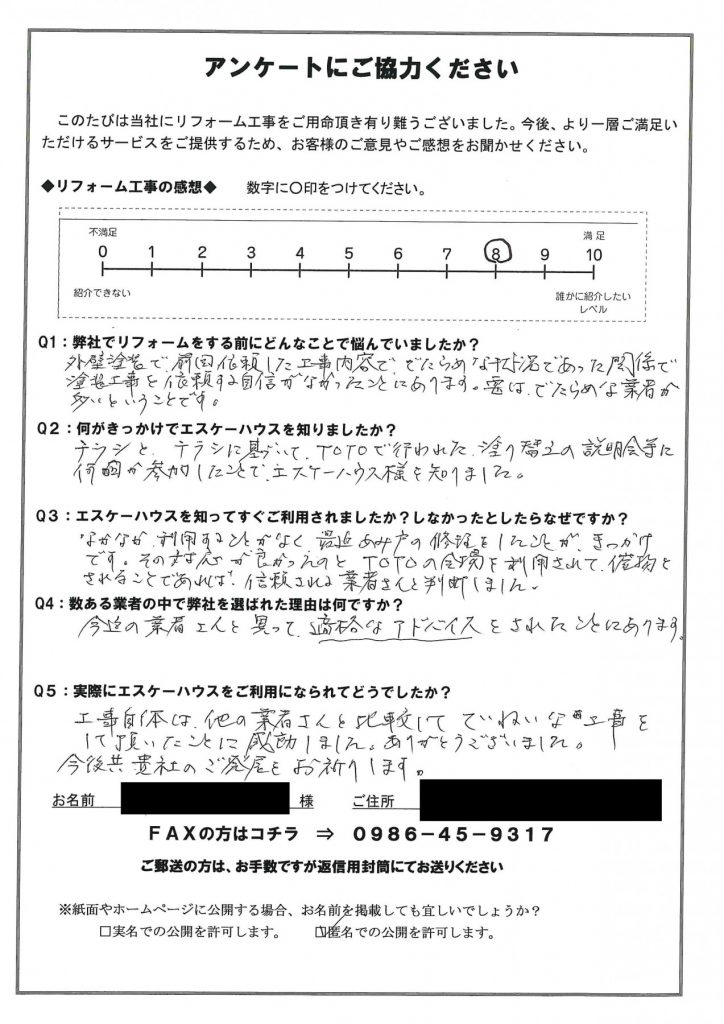 アンケートにご協力ください
このたびは当社にリフォーム工事をご用命頂き有り難うございました。今後、より一層ご満足い
ただけるサービスをご提供するため、お客様のご意見やご感想をお聞かせください。
◆リフォーム工事の感想◆ 数字に○印をつけてください。
不満足 満足
0 1 2 3 4 5 6 7 8 9 10
紹介できない 誰かに紹介したい
レベル
Q1：弊社でリフォームをする前にどんなことで悩んでいましたか？
外壁塗装で、前回依頼した工事内容で、でたらめな状況であった関係で
塗装工事を依頼する自信がなかったことにあります。要は、でたらめな業者が
多いということです。
Q2：何がきっかけでエスケーハウスを知りましたか？
チラシと、チラシに基づいて、TOTOで行われた、塗り替えの説明会等に
何回か参加したことで、エスケーハウス様を知りました。
Q3：エスケーハウスを知ってすぐご利用されましたか？しなかったとしたらなぜですか？
なかなか、利用することがなく、最近あみ戸の修理をしたことが、きっかけ
です。その対応が良かったのと、TOTOの会場を利用されて、催物を
されることであれば、信頼される業者さんと判断しました。
Q4：数ある業者の中で弊社を選ばれた理由は何ですか？
今迄の業者さんと異って、適格なアドバイスをされたことにあります。
Q5：実際にエスケーハウスをご利用になられてどうでしたか？
工事自体は、他の業者さんと比較して ていねいな工事を
して頂いたことに感動しました。ありがとうございました。
今後共貴社のご発展をお祈りします。
お名前 様 ご住所
FAXの方はコチラ ⇒ 0986-45-9317
ご郵送の方は、お手数ですが返信用封筒にてお送りください
※紙面やホームページに公開する場合、お名前を掲載しても宜しいでしょうか？
□実名での公開を許可します。 ☑匿名での公開を許可します。